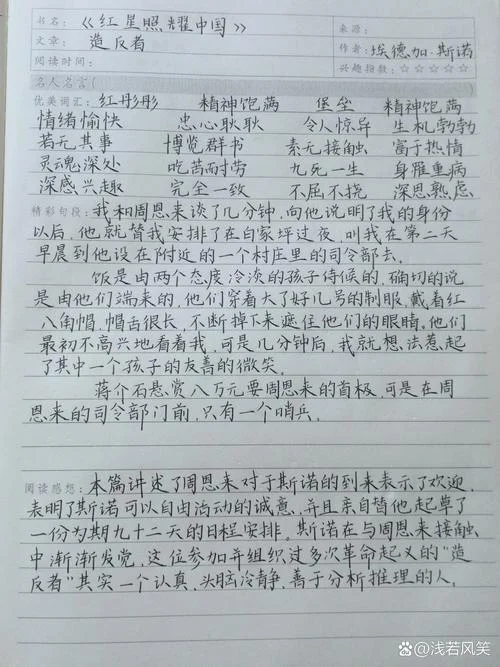 书名:《红星照耀中国》
来源:
文章: 造反者
作者:埃德加·斯诺
阅读时间:
兴趣指数:☆☆☆☆☆
名人名言(
)
优美词汇: 红彤彤 精神饱满 堡垒 精神饱满
情绪愉快 忠心耿耿 令人惊异 生机勃勃
若无其事 博览群书 素无接触 富于热情
灵魂深处 吃苦耐劳 九死一生 身罹重病
深感兴趣 完全一致 不屈不挠 深思熟虑
精彩句段: 我和周恩来谈了几分钟,向他说明了我的身份
以后,他就替我安排了在白家坪过夜,叫我在第二天
早晨到他设在附近的一个村庄里的司令部去。
饭是由两个态度冷淡的孩子侍候的,确切的说
是由他们端来的,他们穿着大了好几号的制服,戴着红
八角帽,帽舌很长,不断掉下来遮住他们的眼睛。他们
最初不高兴地看看我,可是几分钟后,我就想法惹起
了其中一个孩子的友善的微笑。
蒋介石悬赏八万元要周恩来的首极,可是在周
恩来的司令部门前,只有一个哨兵。
阅读感想: 本篇讲述了周恩来对于斯诺的到来表示了欢迎,
表明了斯诺可以自由活动的诚意,并且亲自替他起草了
一份为期九十二天的日程安排。斯诺在与周恩来接触
中渐渐发觉,这位参加并组织过多次革命起义的"造
反者"其实一个认真,头脑冷静,善于分析推理的人。
@浅若风笑